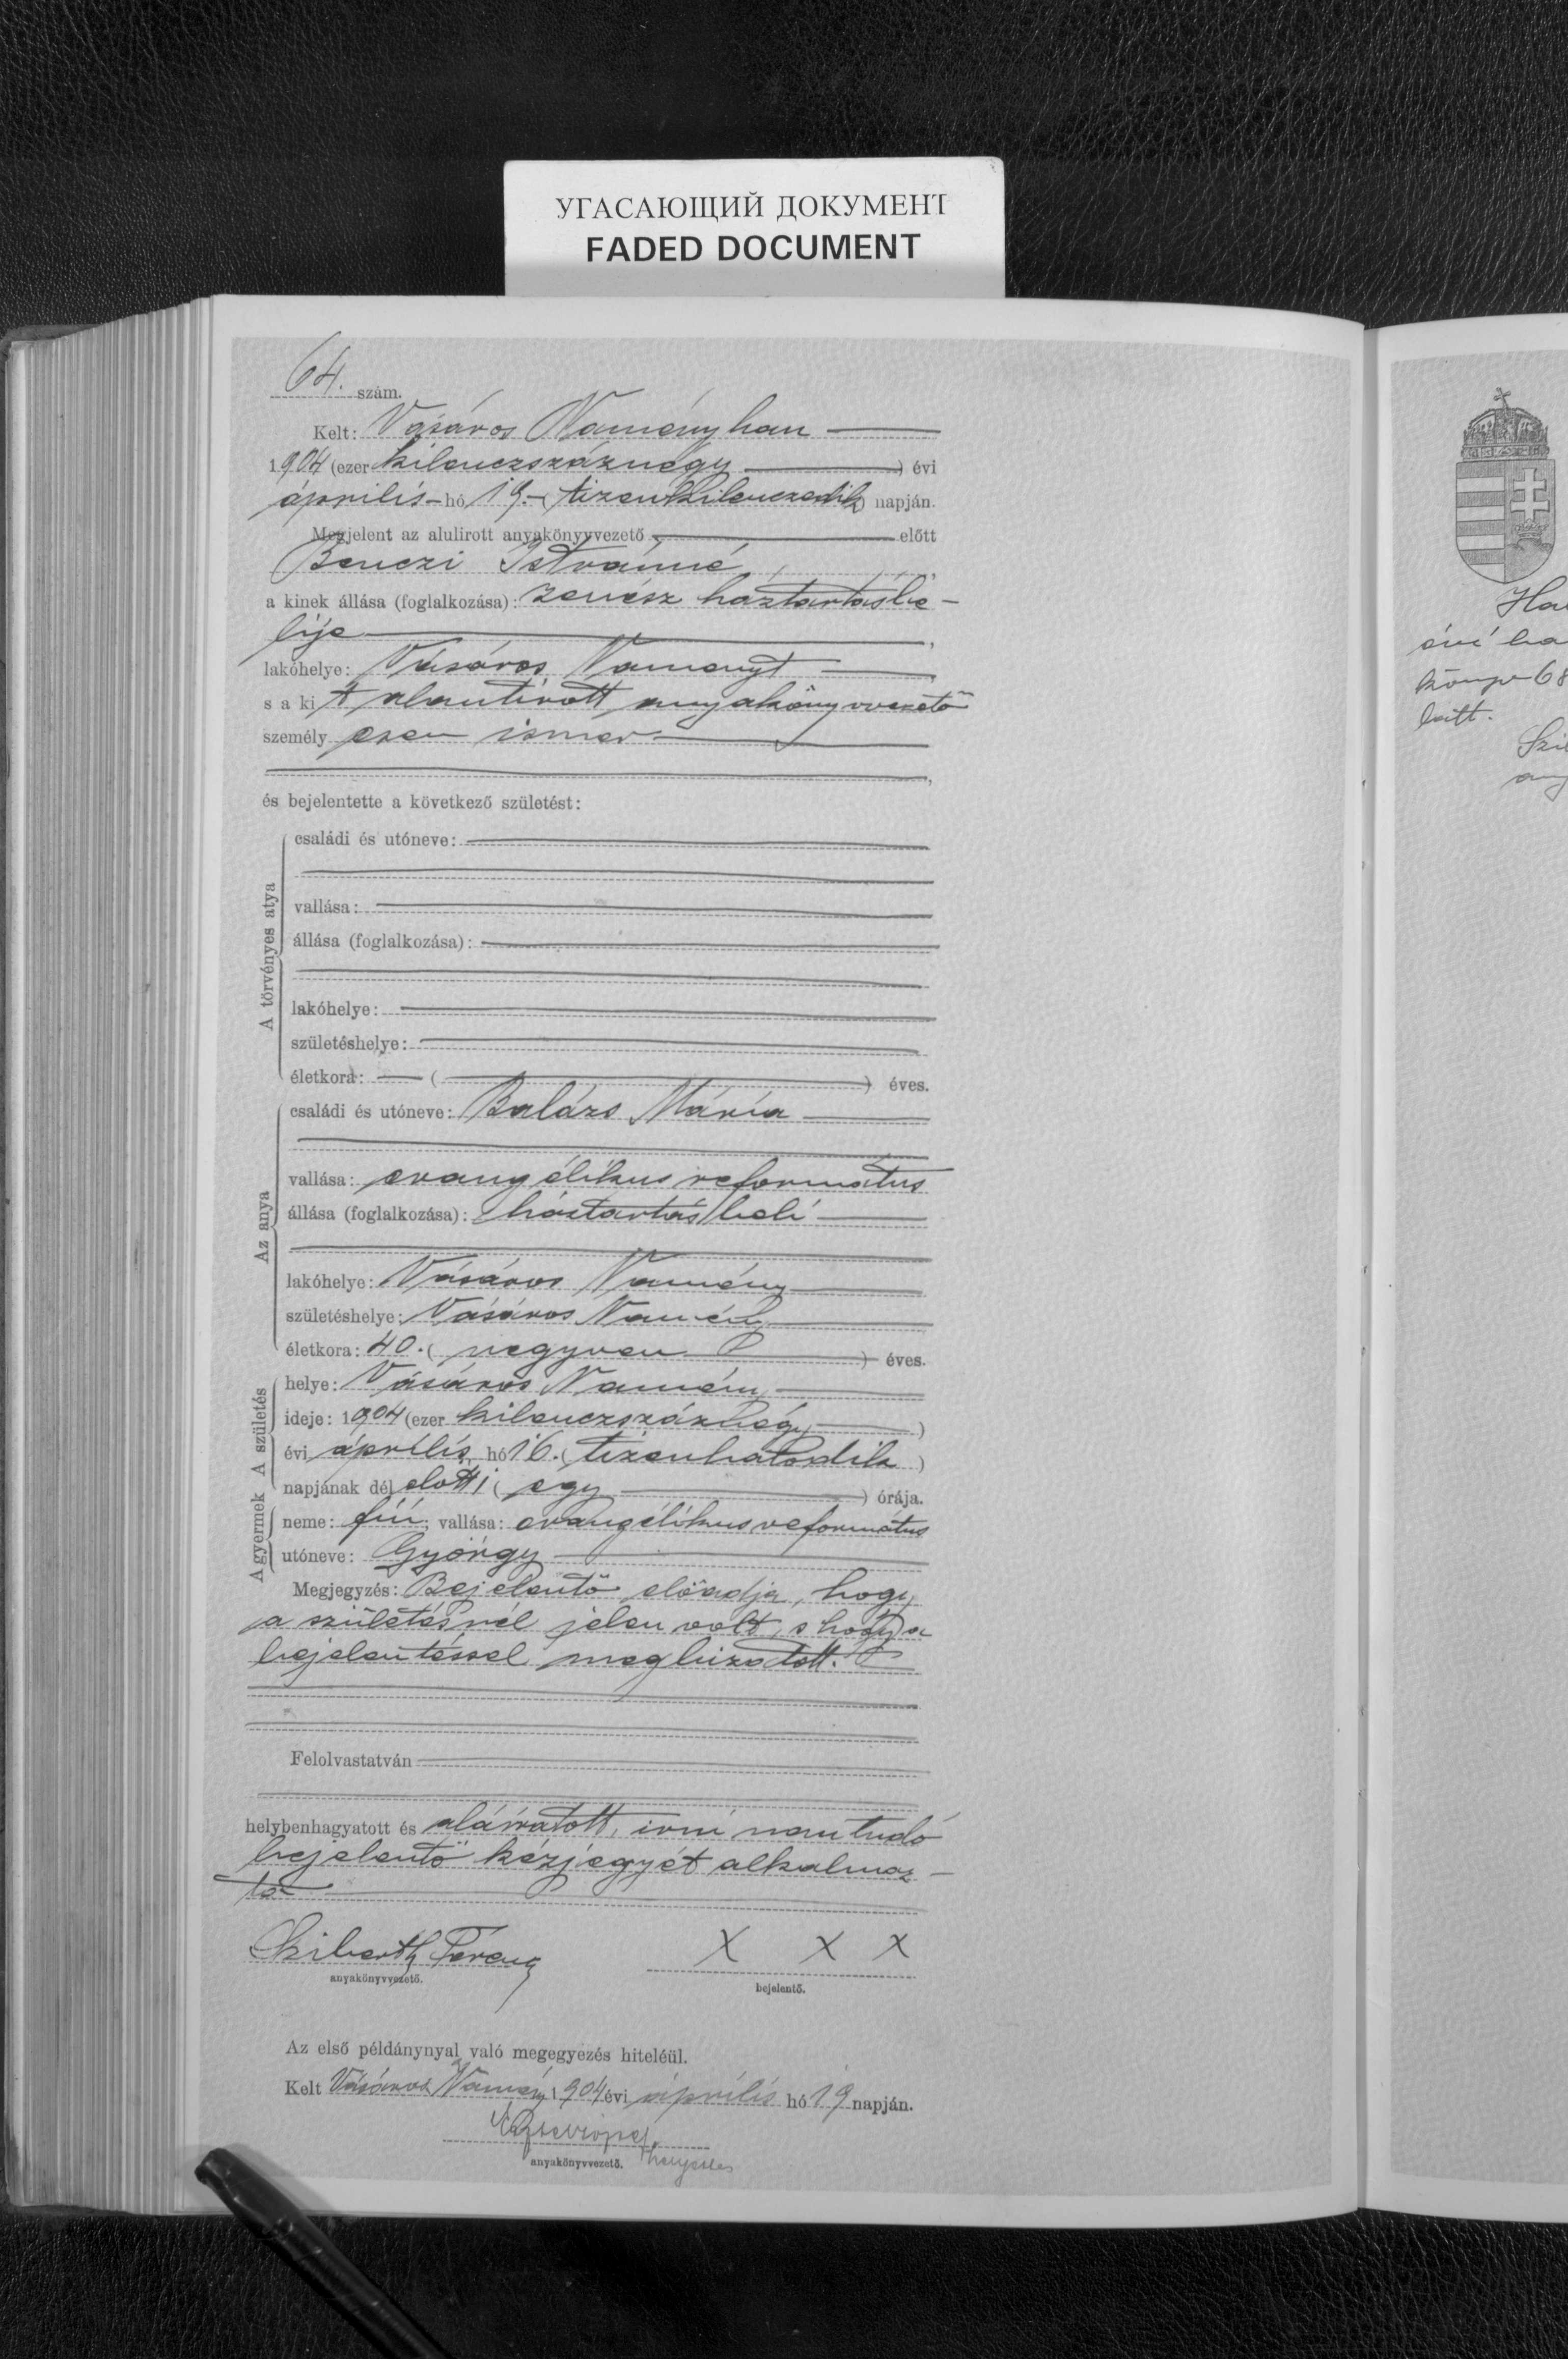 УГАСАЮЩИЙ ДОКУМЕНТ
FADED DOCUMENT
64. szám.
Kelt: Vásáros Naményban
1904 (ezer kilenczszáznégy) évi
április hó 19. (tizenkilenczedik) napján.
Megjelent az alulirott anyakönyvvezető előtt
Benczi Istvánné,
a kinek állása (foglalkozása): zenész háztartásbe-
lije,
lakóhelye: Vásáros Naményt,
s a ki t alantirott anyakönyvvezető
személy esen ismer
és bejelentette a következő születést:
A törvényes atya
családi és utóneve:
vallása:
állása (foglalkozása):
lakóhelye:
születéshelye:
életkora: ( ) éves.
Az anya
családi és utóneve: Balázs Mária
vallása: evangélikus református
állása (foglalkozása): háztartásbeli
lakóhelye: Vásáros Namény
születéshelye: Vásáros Namény
életkora: 40. (negyven) éves.
A születés
helye: Vásáros Namény
ideje: 1904 (ezer kilenczszáznégy)
évi április hó 16. (tizenhatodik)
napjának dél előtti (egy) órája.
A gyermek
neme: fiú; vallása: evangélikus református
utóneve: György
Megjegyzés: Bejelentő előadja, hogy
a születésnél jelen volt, s hogy a
bejelentéssel megbizatott.
Felolvastatván
helybenhagyatott és aláiratott, irni nem tudó
bejelentő kézjegyét alkalmaz-
ta
Sziberth Ferencz X X X
anyakönyvvezető. bejelentő.
Az első példánynyal való megegyezés hiteléül.
Kelt Vásáros Namény 1904 évi április hó 19 napján.
anyakönyvvezető.
Ha
évi
68